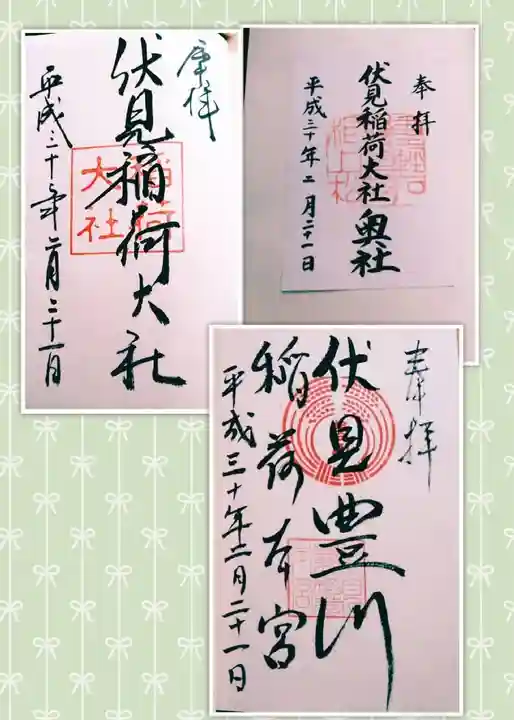 奉拝
伏見稲荷大社
稲荷
大社
平成三十年二月二十一日
奉拝
伏見稲荷大社奥社
平成三十年二月二十一日
奉拝
伏見豊川
稲荷本宮
平成三十年二月二十一日